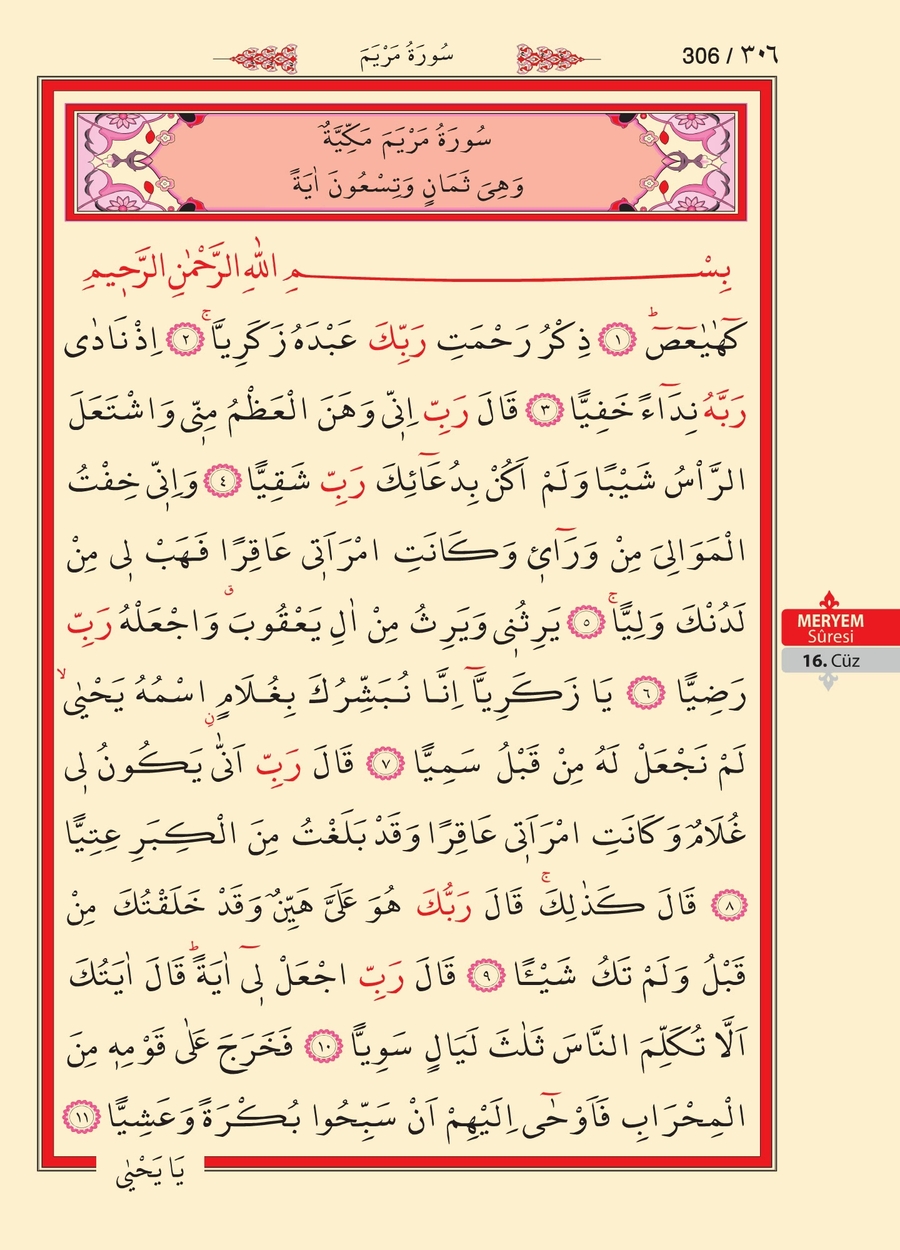 306 / ٣٠٦
سُورَةُ مَرْيَمَ
سُورَةُ مَرْيَمَ مَكِّيَّةٌ
وَهِىَ ثَمَانٍ وَتِسْعُونَ اٰيَةً
بِسْمِ اللّٰهِ الرَّحْمٰنِ الرَّح۪يمِ
كٓهٰيٰعٓصٓ ؕ ﴿١﴾ ذِكْرُ رَحْمَتِ رَبِّكَ عَبْدَهُ زَكَرِيَّا ۚ ﴿٢﴾ اِذْ نَادٰى
رَبَّهُ نِدَٓاءً خَفِيًّا ﴿٣﴾ قَالَ رَبِّ اِنّ۪ى وَهَنَ الْعَظْمُ مِنّ۪ى وَاشْتَعَلَ
الرَّاْسُ شَيْبًا وَلَمْ اَكُنْ بِدُعَٓائِكَ رَبِّ شَقِيًّا ﴿٤﴾ وَاِنّ۪ى خِفْتُ
الْمَوَالِىَ مِنْ وَرَٓائ۪ وَكَانَتِ امْرَاَت۪ى عَاقِرًا فَهَبْ ل۪ى مِنْ
لَدُنْكَ وَلِيًّا ۚ ﴿٥﴾ يَرِثُن۪ى وَيَرِثُ مِنْ اٰلِ يَعْقُوبَ ۗ وَاجْعَلْهُ رَبِّ
رَضِيًّا ﴿٦﴾ يَا زَكَرِيَّٓا اِنَّا نُبَشِّرُكَ بِغُلَامٍ ۨاسْمُهُ يَحْيٰى ۙ
لَمْ نَجْعَلْ لَهُ مِنْ قَبْلُ سَمِيًّا ﴿٧﴾ قَالَ رَبِّ اَنّٰى يَكُونُ ل۪ى
غُلَامٌ وَكَانَتِ امْرَاَت۪ى عَاقِرًا وَقَدْ بَلَغْتُ مِنَ الْكِبَرِ عِتِيًّا
﴿٨﴾ قَالَ كَذٰلِكَ ۚ قَالَ رَبُّكَ هُوَ عَلَىَّ هَيِّنٌ وَقَدْ خَلَقْتُكَ مِنْ
قَبْلُ وَلَمْ تَكُ شَيْـًٔا ﴿٩﴾ قَالَ رَبِّ اجْعَلْ ل۪ٓى اٰيَةً ؕ قَالَ اٰيَتُكَ
اَلَّا تُكَلِّمَ النَّاسَ ثَلٰثَ لَيَالٍ سَوِيًّا ﴿١٠﴾ فَخَرَجَ عَلٰى قَوْمِه۪ مِنَ
الْمِحْرَابِ فَاَوْحٰٓى اِلَيْهِمْ اَنْ سَبِّحُوا بُكْرَةً وَعَشِيًّا ﴿١١﴾
يَا يَحْيٰى
MERYEM
Sûresi
16. Cüz